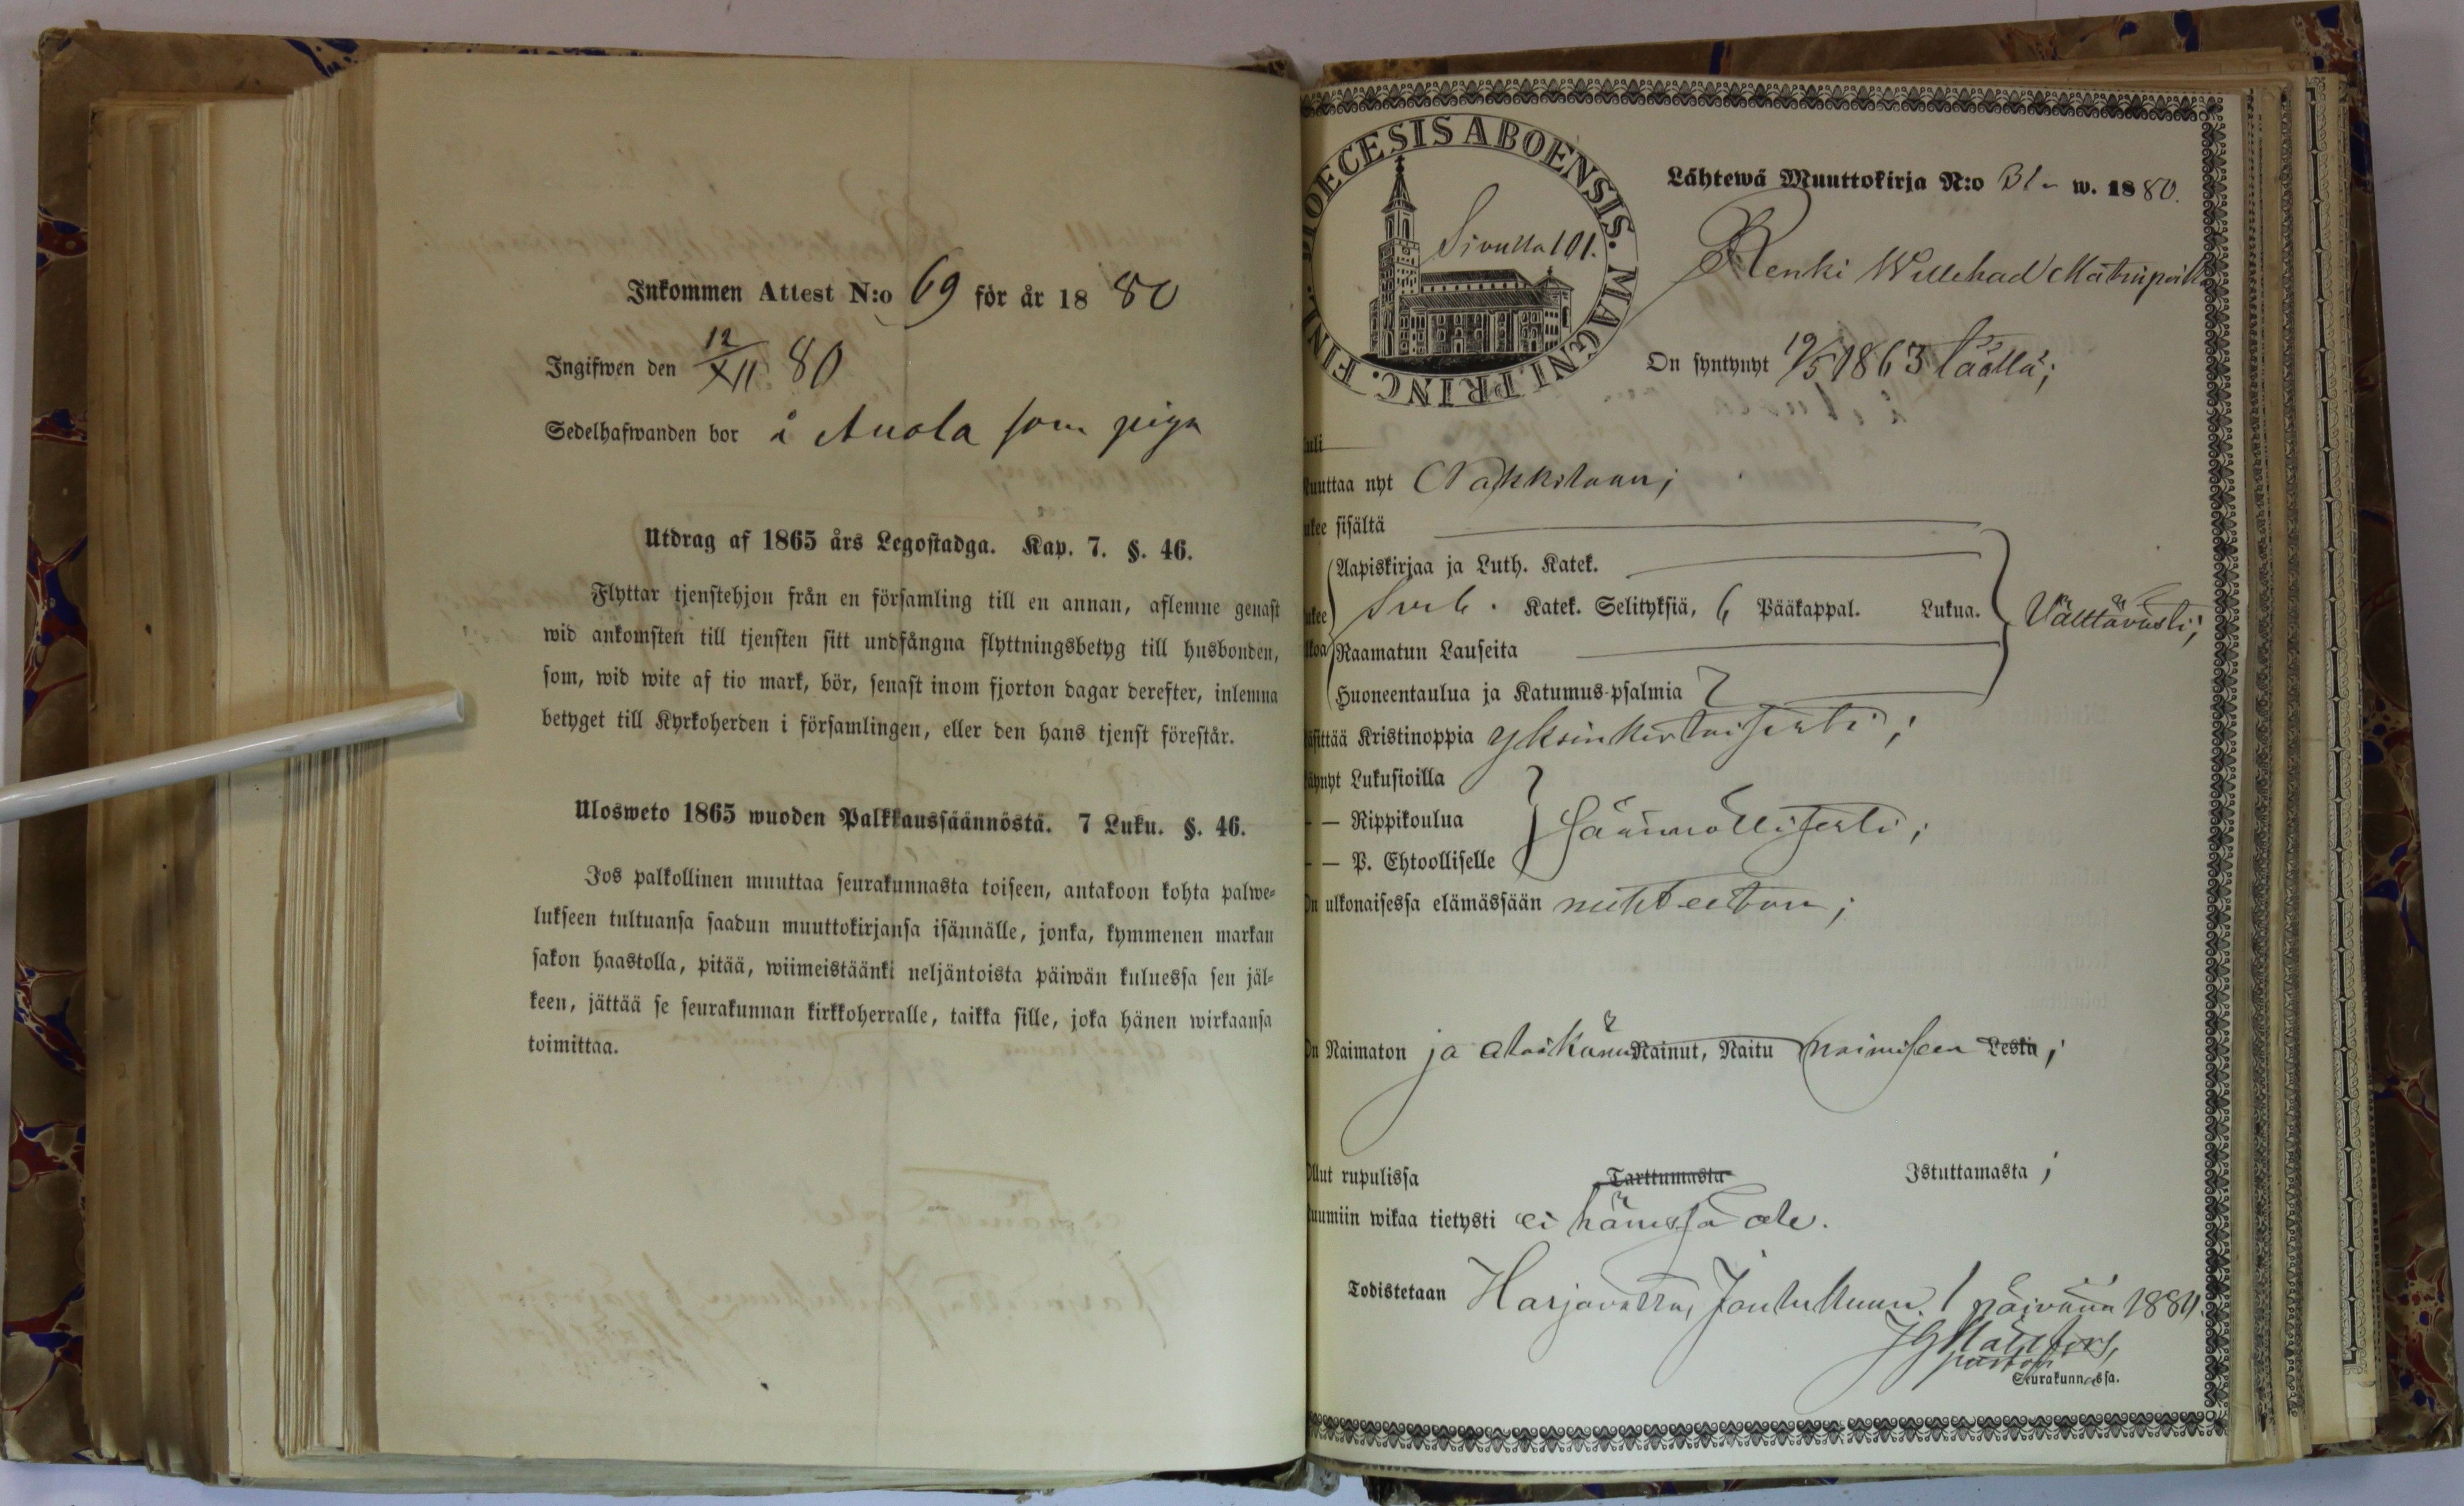 Inkommen Attest N:o 69 för år 18 80
Ingifwen den 12/XII 80
Sedelhafwanden bor i Anola som piga
Utdrag af 1865 års Legostadga. Kap. 7. §. 46.
Flyttar tjenstehjon från en församling till en annan, aflemne genast
wid ankomsten till tjensten sitt undfångna flyttningsbetyg till husbonden,
som, wid wite af tio mark, bör, senast inom fjorton dagar derefter, inlemna
betyget till Kyrkoherden i församlingen, eller den hans tjenst förestår.
Ulosweto 1865 wuoden Palkkaussäännöstä. 7 Luku. §. 46.
Jos palkollinen muuttaa seurakunnasta toiseen, antakoon kohta palwe-
lukseen tultuansa saadun muuttokirjansa isännälle, jonka, kymmenen markan
sakon haastolla, pitää, wiimeistäänki neljäntoista päiwän kuluessa sen jäl-
keen, jättää se seurakunnan kirkkoherralle, taikka sille, joka hänen wirkaansa
toimittaa.
DIOECESIS ABOENSIS. MAGNI. PRINC. FINL.
Sivulla 101.
Lähtewä Muuttokirja N:o 31 w. 1880.
Renki Willehad
On syntynyt 19/5 1863 täällä;
uli
uuttaa nyt Nakkilaan;
ukee sisältä
Aapiskirjaa ja Luth. Katek.
ukee Sveb. Katek. Selityksiä, 6 Pääkappal. Lukua. Välttävästi;
lkoa Raamatun Lauseita
Huoneentaulua ja Katumus-psalmia 7
äsittää Kristinoppia yksinkertaisesti;
äynyt Lukusioilla
— Rippikoulua säännöllisesti;
— P. Ehtoolliselle
On ulkonaisessa elämässään nuhteeton;
On Naimaton ja Nainut, Naitu naimiseen Leski;
Ollut rupulissa Tarttumasta Istuttamasta;
uumiin wikaa tietysti ei hänessä ole.
Todistetaan Harjavalta, Joulukuun 1 päivänä 1880.
pastori
Seurakunnassa.